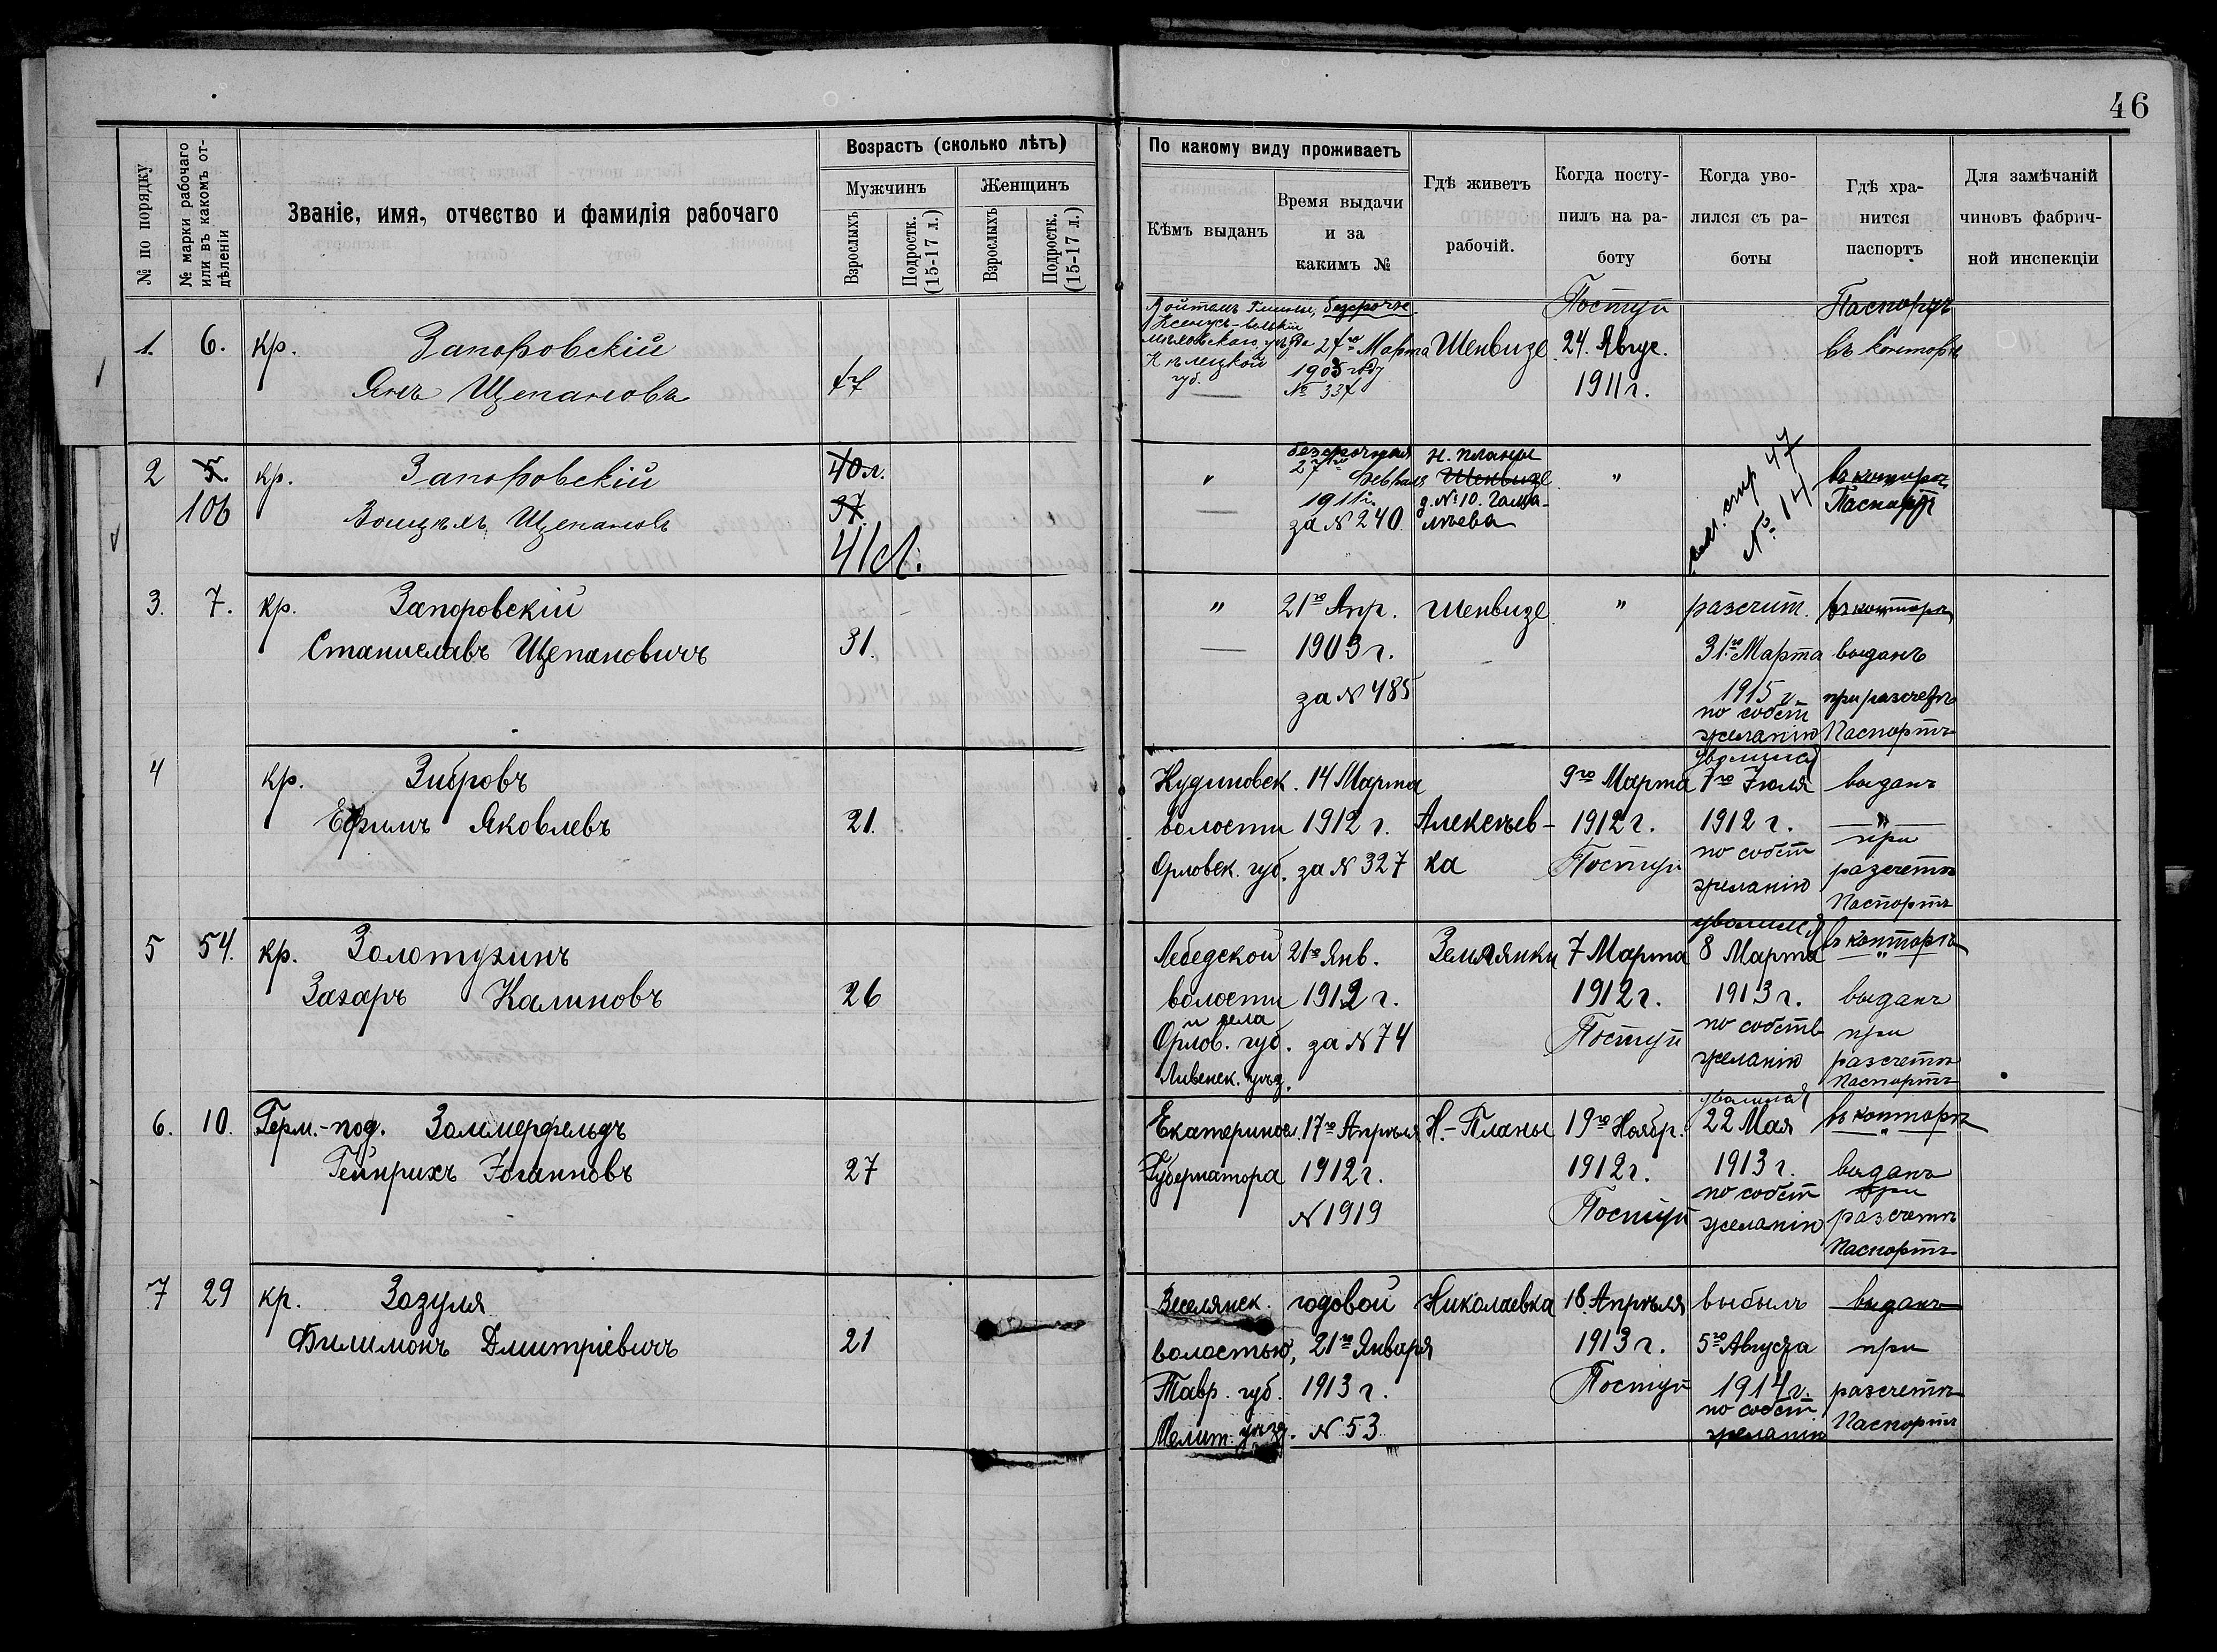 46
№ по порядку
№ марки рабочаго
или въ какомъ от-
дѣленіи
Званіе, имя, отчество и фамилія рабочаго
Возрастъ (сколько лѣтъ)
Мужчинъ
Женщинъ
Взрослыхъ
Подростк.
(15-17 л.)
Взрослыхъ
Подростк.
(15-17 л.)
По какому виду проживаетъ
Кѣмъ выданъ
Время выдачи
и за
какимъ №
Гдѣ живетъ
рабочій.
Когда посту-
пилъ на ра-
боту
Когда уво-
лился съ ра-
боты
Гдѣ хра-
нится
паспортъ
Для замѣчаній
чиновъ фабрич-
ной инспекціи
1. 6. кр. Запоровскій
Янъ Щепановъ
47
Войтомъ Гмины,
уѣзда
Кѣлецкой
губ.
безсрочн.
27го Марта
190 году
№ 337
Шенвизе.
Поступ
24. Авгус.
1911 г.
Паспортъ
въ конторѣ
2 5. кр. Запоровскій
106
Войцѣхъ Щепановъ
40 л.
37.
41 л.
"
безсрочная
27го
Февраля
1911 г.
за № 240.
Н. планы
Шенвизе
д. № 10. Гама-
лѣева
"
стр 47
№ 14
въ конторѣ
Паспорт
3. 7. кр. Запоровскій
Станиславъ Щепановичъ
31.
"
21го Апр.
1903 г.
за № 485
Шенвизе.
"
разсчит.
31го Марта
1915 г.
по собст
желанію
въ конторѣ
выданъ
при разсчетѣ
Паспортъ
4 кр. Зибровъ
Ефимъ Яковлевъ
21.
Кудиновск.
волости
Орловск. губ.
14 Марта
1912 г.
за № 327
Алексѣев-
ка
9го Марта
1912 г.
Поступ
уволился
7го Іюля
1912 г.
по собст
желанію
выданъ
"
при
разсчетѣ
Паспортъ
5 54. кр. Золотухинъ
Захаръ Калиновъ
26
Лебедской
волости
и села
Орлов. губ.
Ливенск. уѣзд.
21го Янв.
1912 г.
за № 74
Землянки
7 Марта
1912 г.
Поступ
уволился
8 Марта
1913 г.
по собств
желанію
въ конторѣ
"
выданъ
при
разсчетѣ
Паспортъ
6. 10. Герм.-под. Золмерфельдъ
Гейнрихъ Іоганновъ
27
Екатеринос.
Губернатора
17го Апрѣля
1912 г.
№ 1919
Н.-Планы
19го Ноябр.
1912 г.
Поступ
уволился
22 Мая
1913 г.
по собст
желанію
въ конторѣ
"
выданъ
при
разсчетѣ
Паспортъ
7 29 кр. Зозуля
Филимонъ Дмитріевичъ
21
Веселянск.
волостью,
Тавр. губ.
Мелит. уѣзд.
годовой
21го Января
1913 г.
№ 53
Николаевка
18. Апрѣля
1913 г.
Поступ
выбылъ
5го Августа
1914 г.
по собст.
желанію
выданъ
при
разсчетѣ
Паспортъ